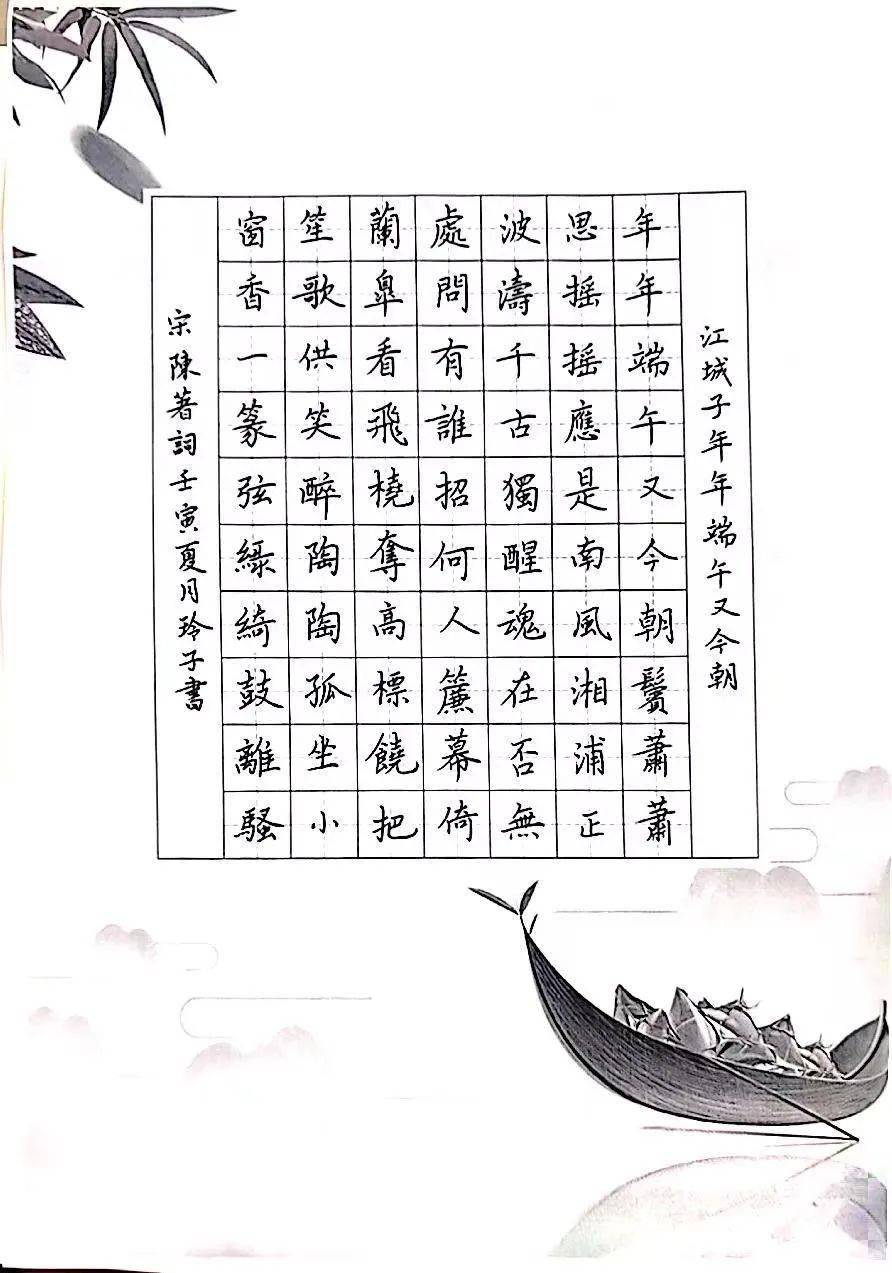 江城子年年端午又今朝
年年端午又今朝鬢蕭蕭
思摇摇應是南風湘浦正
波濤千古獨醒魂在否無
處問有誰招何人簾幕倚
蘭皐看飛橈奪高標饒把
笙歌供笑醉陶陶孤坐小
窗香一篆弦綠綺鼓離騷
宋陳著詞壬寅夏月玲子書